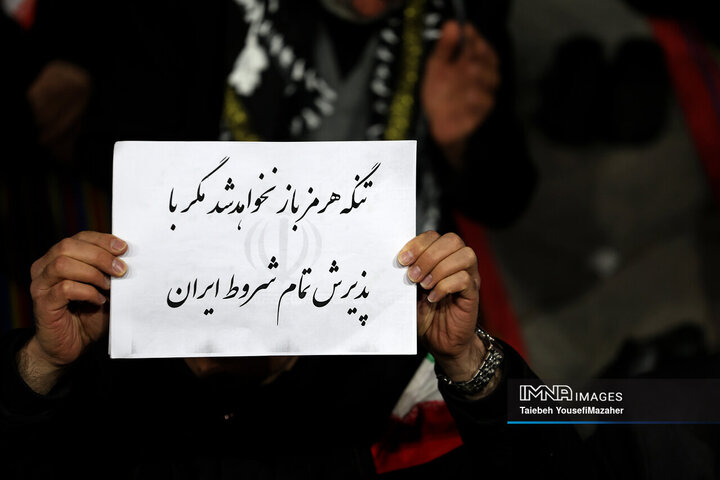 تنگه هرمز باز نخواهد شد مگر با
پذیرش تمام شروط ایران
IMNA IMAGES
Taiebeh YousefiMazaher